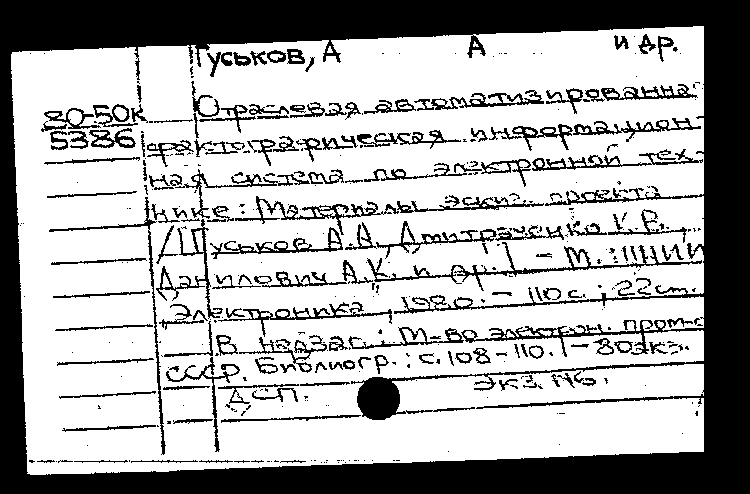 Гуськов, А А и др.
80-50к
5386
Отраслевая автоматизированна
фактографическая информацион-
ная система по электронной тех-
нике: Материалы эскиз. проекта
/[Гуськов А.А., Дмитраченко К.В.,
Данилович А.К. и др.] – М.: ЦНИИ
"Электроника", 1980. – 110 с.; 22 см.
В надзаг.: М-во электрон. пром-с
СССР. Библиогр.: с. 108-110. – 80 экз.
ДСП. Экз. №6.